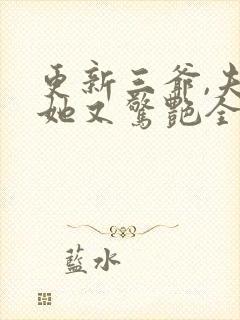 更新三爺,夫
她又驚艷全
藍水